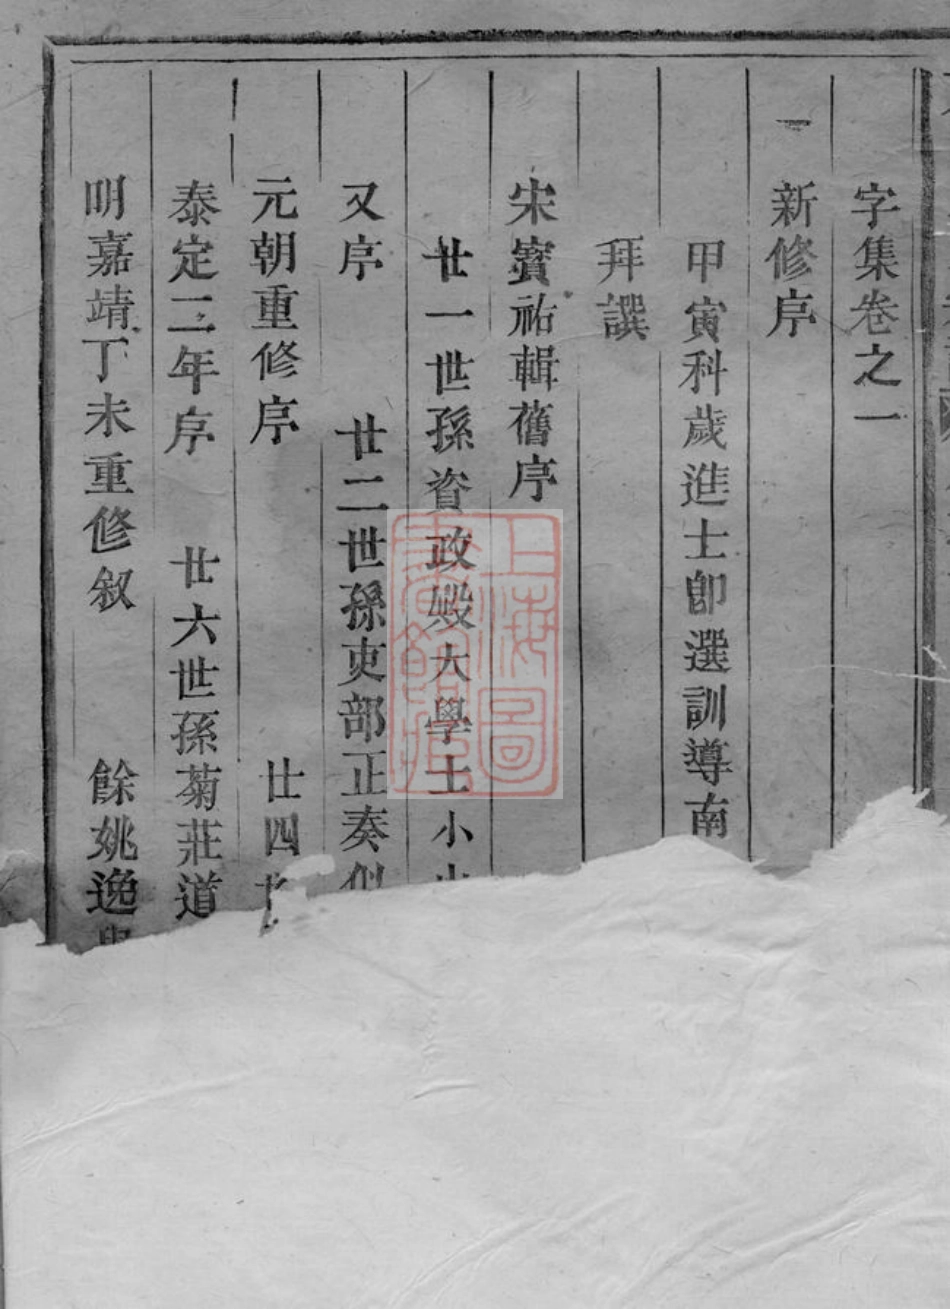 字集卷之一
新修序
甲寅科歲進士卽選訓導南
拜譔
宋寳祐輯舊序
廿一世孫資政殿大學士小
又序 廿二世孫吏部正奏
元朝重修序 廿四
泰定二年序 廿六世孫菊莊道
明嘉靖丁未重修叙 餘姚逸
上海圖書館藏